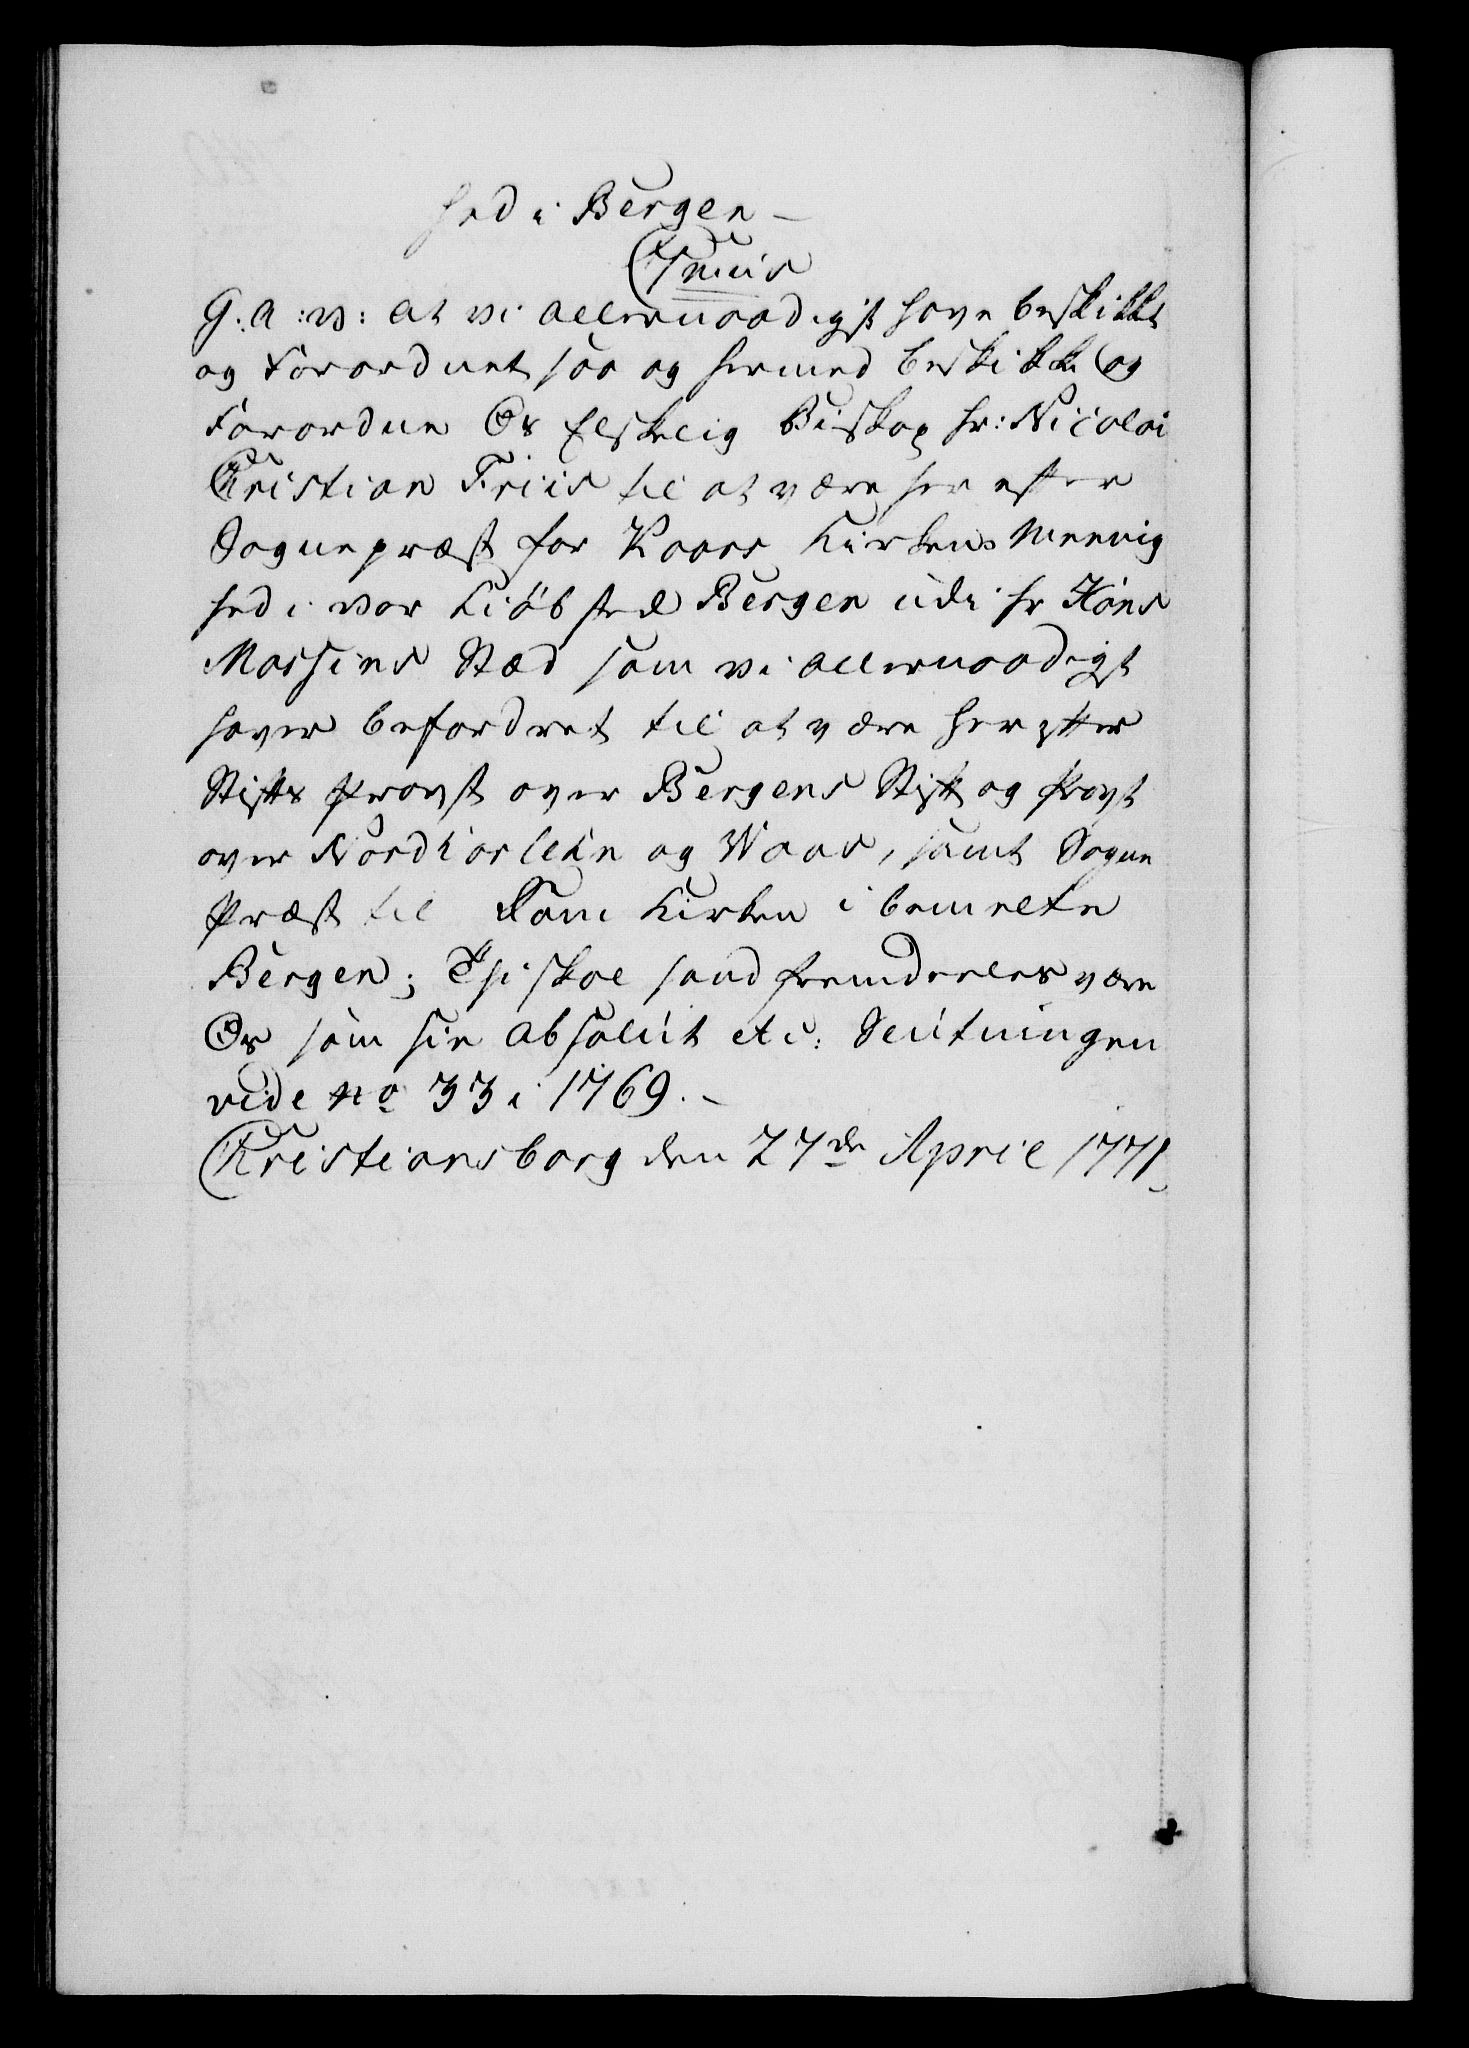 hed i Bergen –
Gr: vis
G: A: V: at vi allernaadigst have beskikket
og Forordnet saa og hermed beskikke og
Forordne Os Elskelig Biskop hr: Nicolai
Christian Friis til at være her efter
Sognepræst for Kaars Kirkens Meenig
hed i vor Kiøbsted Bergen udi hr Hans
Mossins Stæd som vi allernaadigst
haver befordret til at være her efter
Stifts Provst over Bergens Stift og Provst
over Nordhorlehn og Woos, samt Sogne
Præst til Dom Kirken i bemelte
Bergen; Thi skal hand fremdeeles være
Os som hie absolut etc: Slutningen
vide No 33 i 1769. –
Christiansborg den 27de April 1771